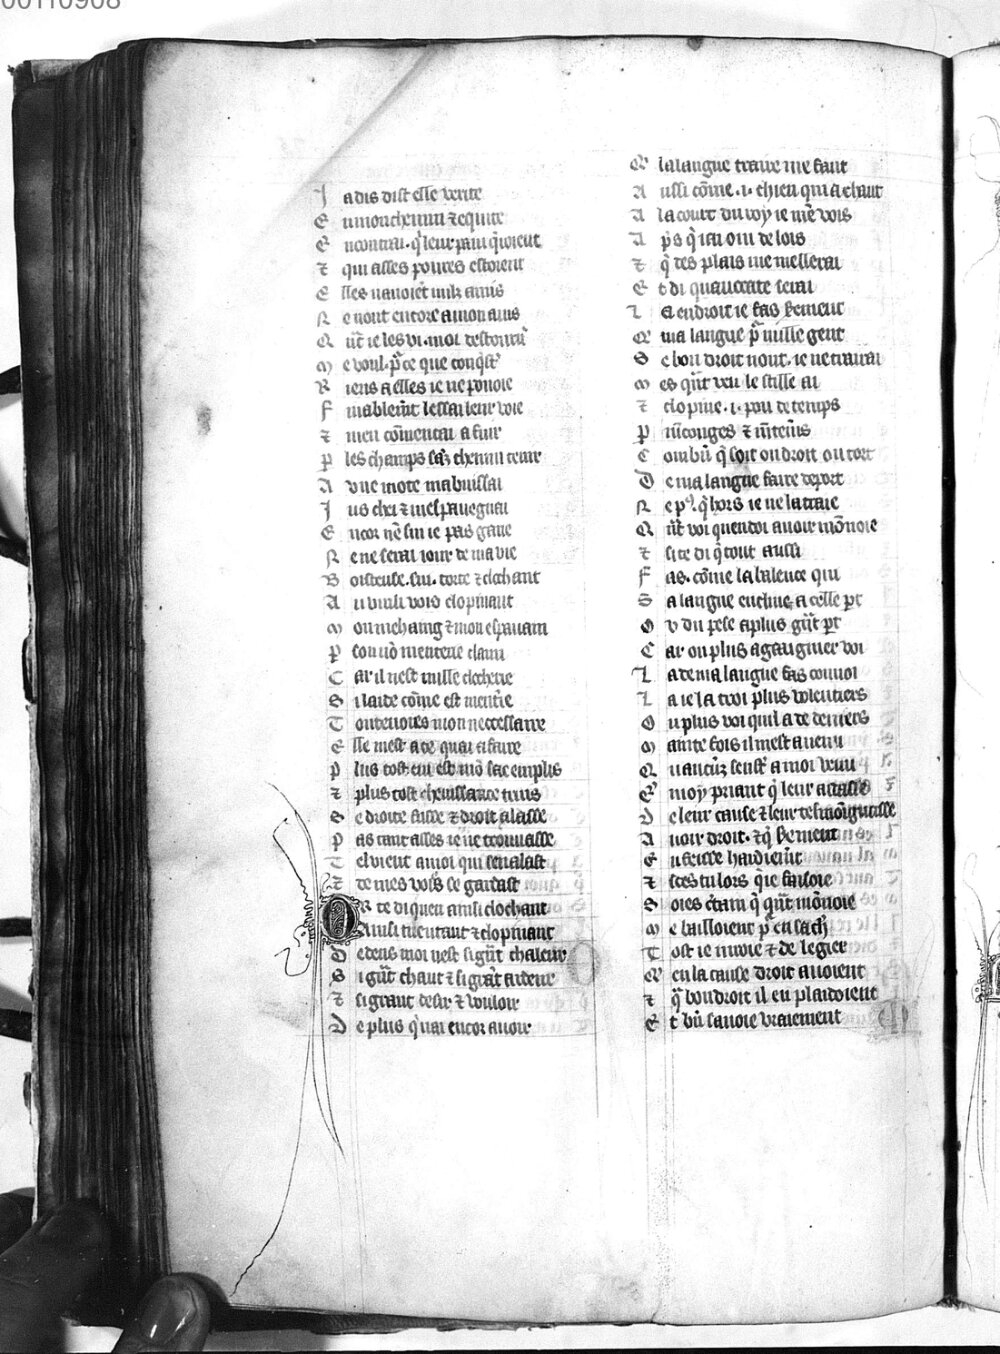 00110908
J adis dist elle verite
E n mon chemin ⁊ equite
E ncontrai. q̃ leur pain q̃roient
⁊ qui asses poures estoient
E lles nauoiẽt nulz amis
N e nont encore a mon auis
Q ñt ie les vi. moi destourñ
M e voul. p̃ ce que conq̃st'
R iens a elles ie ne pouoie
F inablem̃t lessai leur voie
⁊ men cõmencai a fuir
P les champs sãz chemin tenir
A vne mote mabuissai
J us chei ⁊ mespauegnai
E ncor nẽ sui ie pas gaue
N e ne serai iour de ma vie
B oisteuse. sui. torte ⁊ clochant
A u viuli vois clopinant
M on mehaing ⁊ mon espauam
P son nõ menconge claim
C ar il nest nulle clocherie
S i laide cõme est mentie
T outeuoies mon neccessaire
E lle mest a ce quai a faire
P lus tost en est mõ sac emplis
⁊ plus tost cheuissance truis
S e droite fusse ⁊ droit alasse
P as tant asses ie ne trouuasse
T el vient a moi qui senalast
⁊ de mes voies se gardast
O r te di quen ainsi clochant
A insi mentant ⁊ clopinant
D edens moi nest si gñt chaleur
S i gñt chaut ⁊ si grãt ardeur
⁊ si grant desir ⁊ vouloir
D e plus q̃ nai encor auoir
Q' la langue traire me faut
A ussi cõme .i. chien qui a chaut
A la court du roy ie mẽ vois
A p̃s q̃ iai oui de lois
⁊ q̃ des plais me mellerai
E t di quauocate serai
L a endroit ie fas serment
Q' ma langue p̃ nulle gent
S e bon droit nont. ie ne trairai
M es qñt veu le stille ai
⁊ clopine .i. pou de temps
P m̃conges ⁊ m̃tem̃s
C ombñ q̃ soit ou droit ou tort
D e ma langue faire deport
N e p⁹. q̃ hors ie ne la traie
Q ñt voi quen doi auoir mõnoie
⁊ si te di q̃ tout aussi
F as. cõme la balence qui
S a langue encline a celle p̃t
O v du pese a plus gñt p̃t
C ar ou plus a gaaignier voi
L a de ma langue fas connoi
L a ie la trai plus volentiers
O u plus voi quil a de deniers
M ainte fois il mest auenu
Q uaucũs senst a moi venu
E moy priant q̃ leur aidasse
D e leur cause ⁊ leur tesmoignasse
A uoir droit. ⁊ q̃ serment
E n feisse hardiem̃t
⁊ sces tu lors q̃ ie faisoie
S oies c̃tain q̃ qñt mõnoie
M e bailloient p̃ en sach'
T ost ie iuroie ⁊ de legier
Q' en la cause droit auoient
⁊ q̃ bon droit il en plaidoient
E t bñ sauoie vraiement